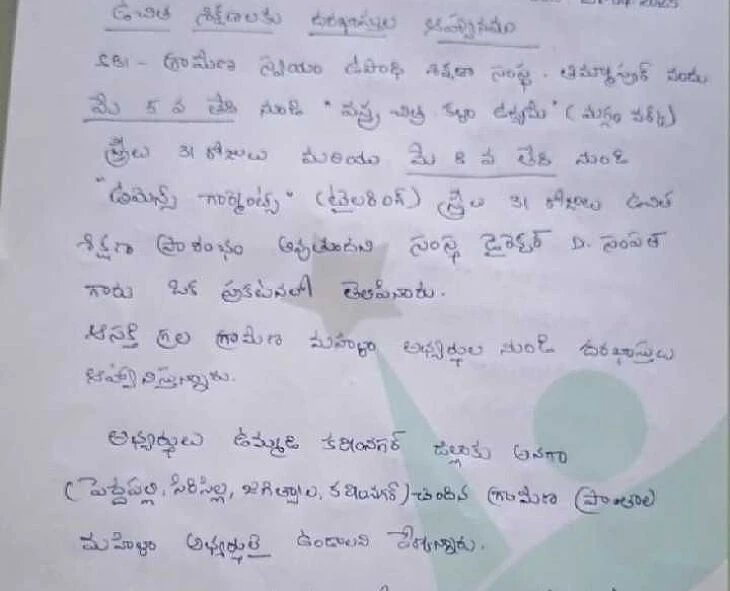 04 2025
ఉచిత శిక్షణలకు దరఖాస్తుల ఆహ్వానము
SBI - గ్రామీణ స్వయం ఉపాధి శిక్షణా సంస్థ, తిమ్మాపూర్ నందు
మే 5 వ తేది నుండి "వస్త్ర చిత్ర కళా ఉద్యమి" (మగ్గం వర్క్)
స్త్రీలు 31 రోజులు మరియు మే 8 వ తేది నుండి
"ఉమెన్స్ గార్మెంట్స్" (టైలరింగ్) స్త్రీల 31 రోజులు ఉచిత
శిక్షణా ప్రారంభం అవుతుందని సంస్థ డైరెక్టర్ D. సంపత్
గారు ఒక ప్రకటనలో తెలిపినారు.
ఆసక్తి గల గ్రామీణ మహిళా అభ్యర్థుల నుండి దరఖాస్తులు
ఆహ్వానిస్తున్నారు.
అభ్యర్థులు ఉమ్మడి కరీంనగర్ జిల్లాకు అనగా
(పెద్దపల్లి, సిరిసిల్ల, జగిత్యాల, కరీంనగర్) చెందిన గ్రామీణ ప్రాంతాల
మహిళా అభ్యర్థులై ఉండాలని పేర్కొన్నారు.